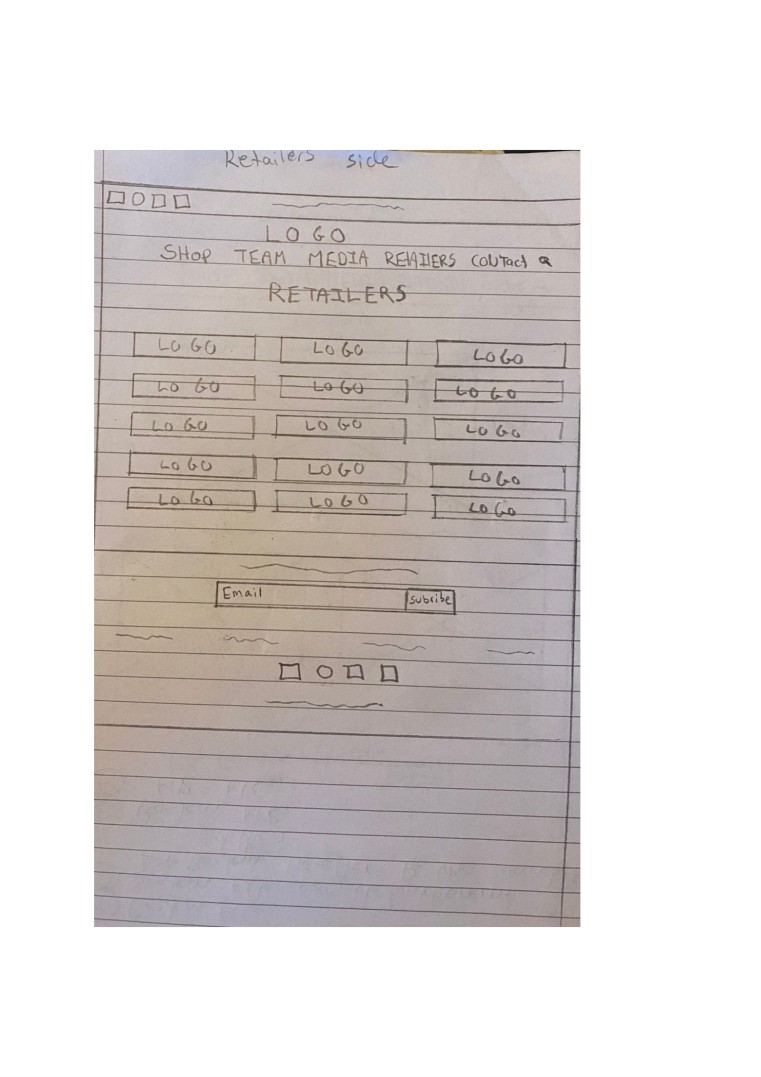 Retailers side
LOGO
SHOP TEAM MEDIA RETAILERS CONTACT
RETAILERS
LOGO LOGO LOGO
LOGO LOGO LOGO
LOGO LOGO LOGO
LOGO LOGO LOGO
LOGO LOGO LOGO
Email subribe